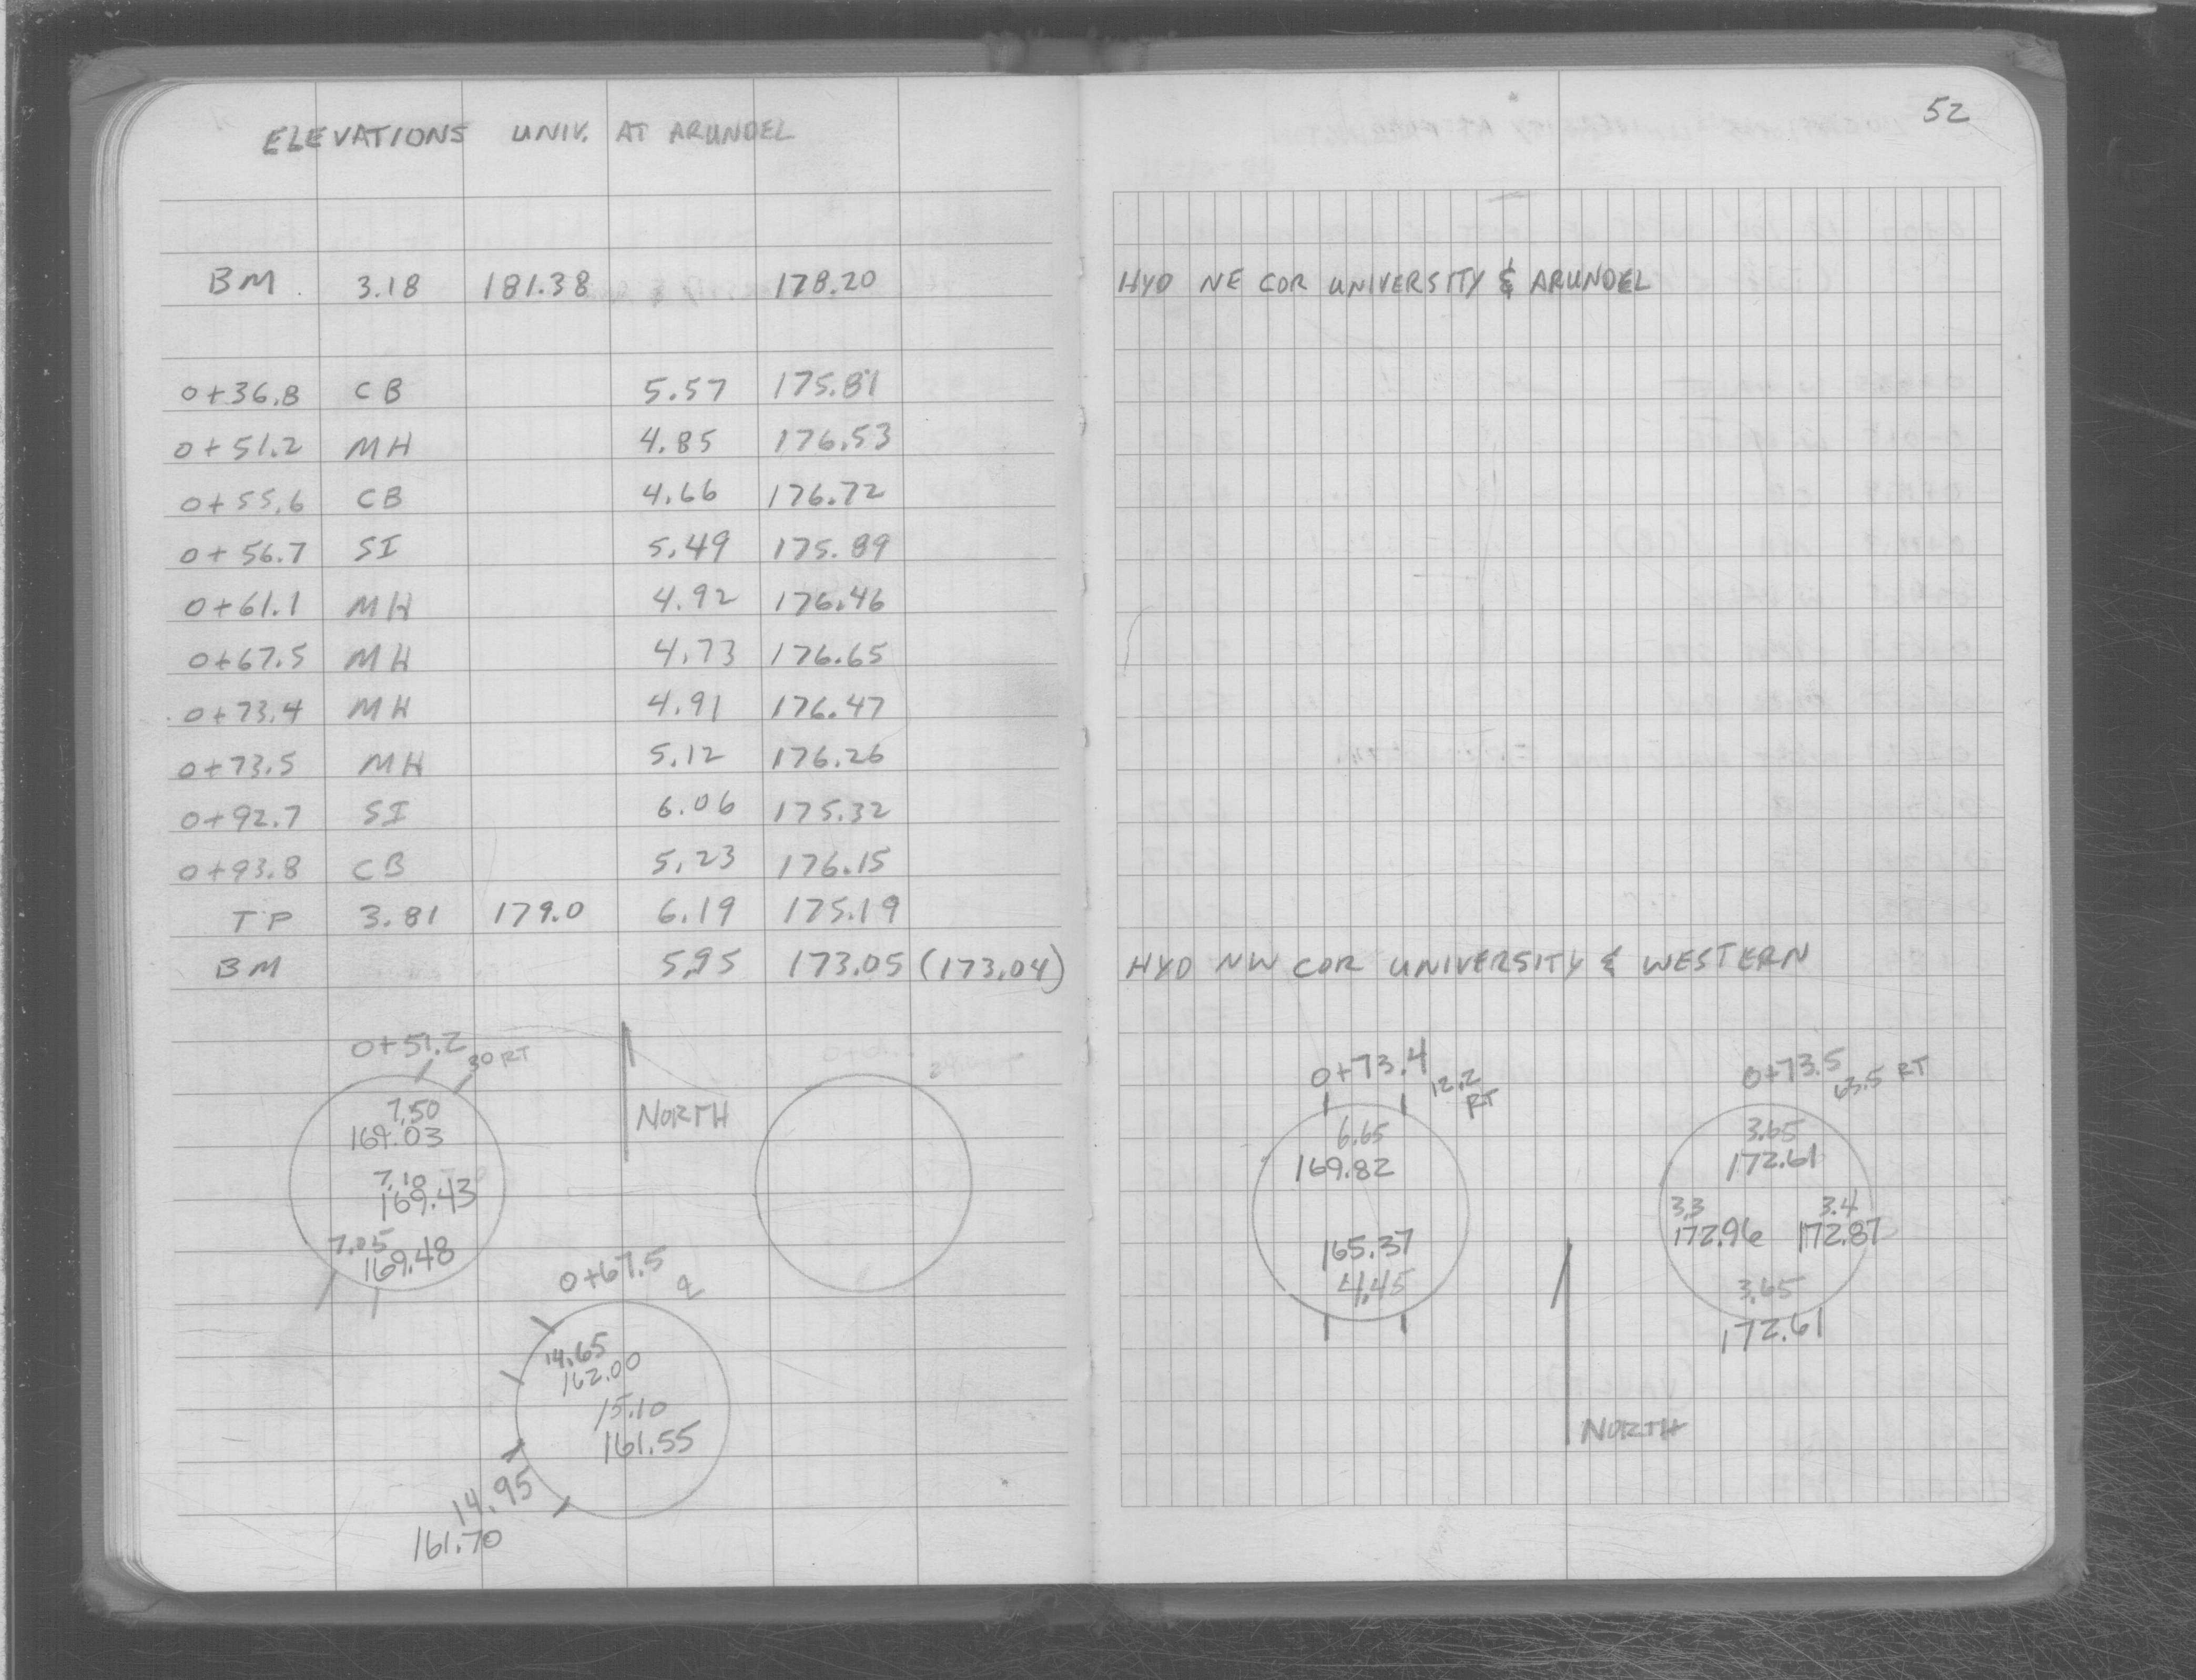 ELEVATIONS UNIV. AT ARUNDEL
BM 3.18 181.38 178.20
0+36.8 CB 5.57 175.81
0+51.2 MH 4.85 176.53
0+55.6 CB 4.66 176.72
0+56.7 SI 5.49 175.89
0+61.1 MH 4.92 176.46
0+67.5 MH 4.73 176.65
0+73.4 MH 4.91 176.47
0+73.5 MH 5.12 176.26
0+92.7 SI 6.06 175.32
0+93.8 CB 5.23 176.15
TP 3.81 179.0 6.19 175.19
BM 5.95 173.05 (173.04)
0+51.2
30 RT
7.50
169.03
7.10
169.43
7.05
169.48
NORTH
0+67.5
14.65
162.00
15.10
161.55
14.95
161.70
52
HYD NE COR UNIVERSITY & ARUNDEL
HYD NW COR UNIVERSITY & WESTERN
0+73.4
12.2
RT
6.65
169.82
165.37
4.45
0+73.5
63.5 RT
3.65
172.61
3.3 3.4
172.96 172.87
3.65
172.61
NORTH